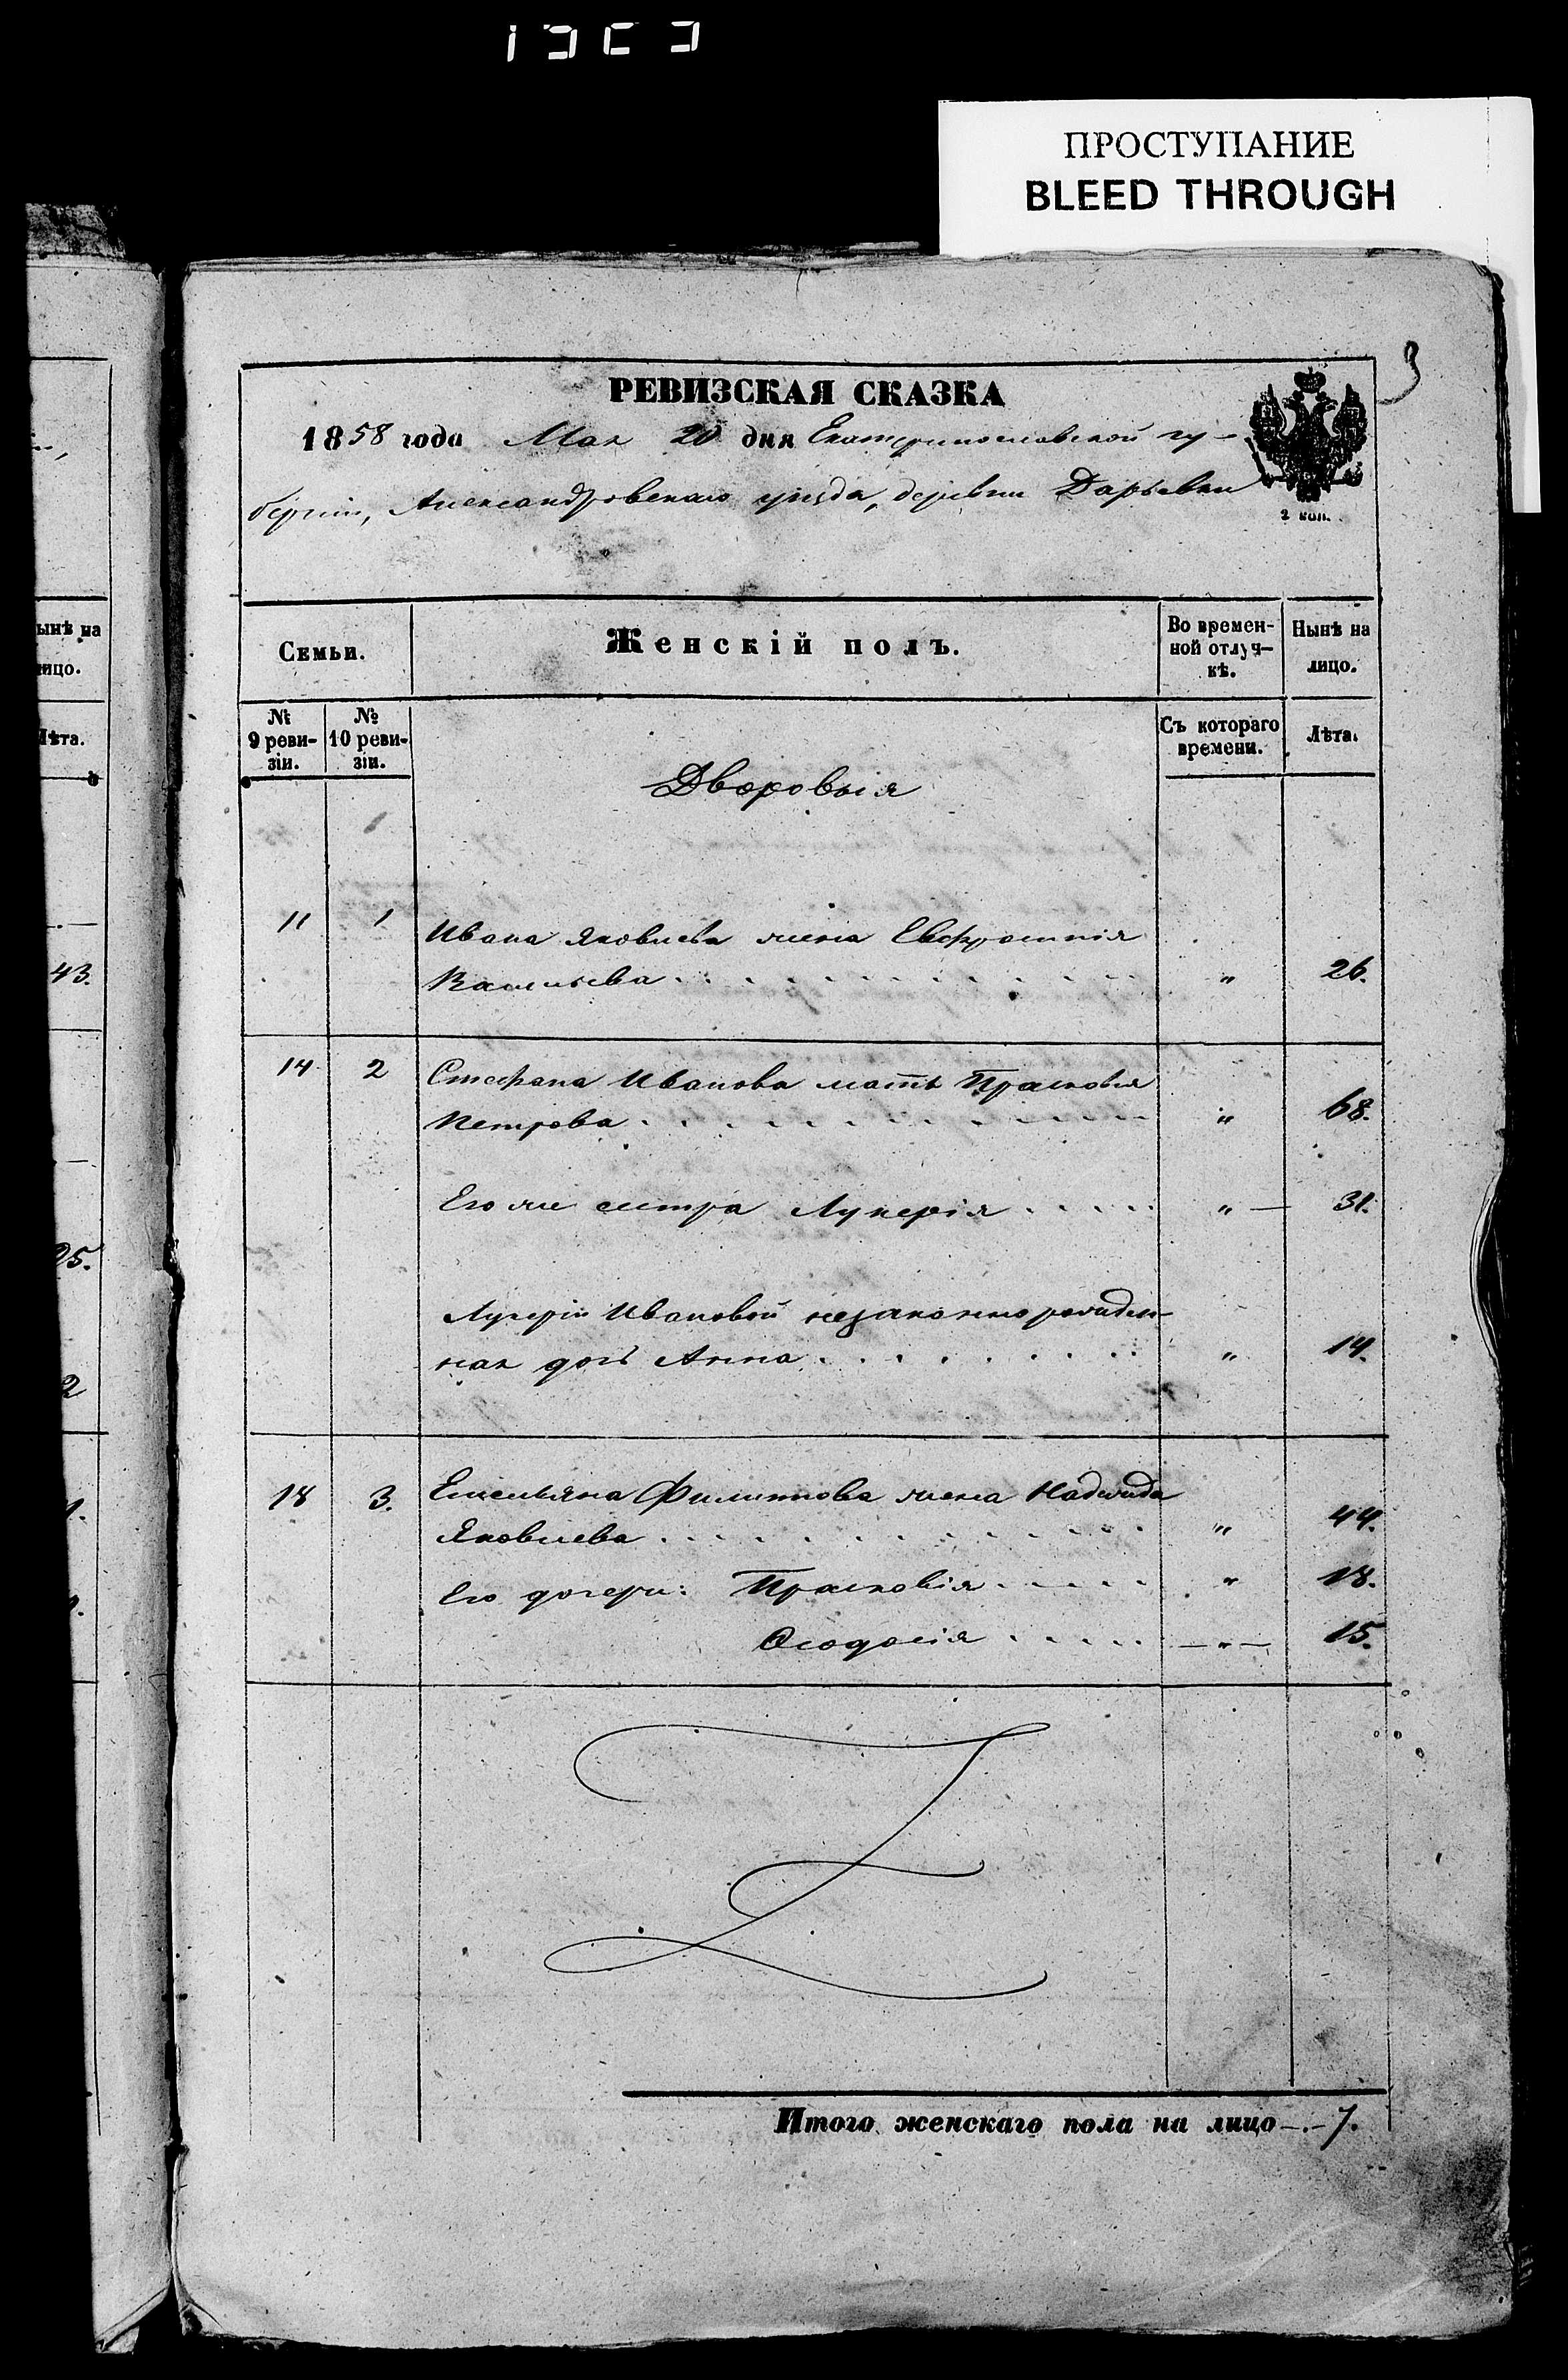 ПРОСТУПАНИЕ
BLEED THROUGH
3
РЕВИЗСКАЯ СКАЗКА
1858 года Мая 20 дня Екатеринославской гу-
берніи, Александровскаго уѣзда, деревни Дарьевки
2 коп.
ынѣ на
ицо.
Лѣта.
43.
25.
2
Семьи.
Женскій полъ.
Во времен-
ной отлуч-
кѣ.
Нынѣ на
лицо.
№
9 реви-
зіи.
№
10 реви-
зіи.
Съ котораго
времени.
Лѣта.
Дворовыя
11 1 Ивана Яковлева жена Евфросинія
Васильева . . . . . . . . . . . „ 26.
14 2 Стефана Иванова мать Прасковья
Петрова . . . . . . . . . . . . „ 68.
Его же сестра Лукерія . . . . . „ — 31.
Лукеріи Ивановой незаконнорожден-
ная дочь Анна . . . . . . . . . „ 14.
18 3. Емельяна Филиппова жена Надежда
Яковлева . . . . . . . . . . . . „ 44.
Его дочери: Прасковія . . . . . „ 18.
Ѳеодосія . . . . . — „ — 15.
Итого женскаго пола на лицо -.- 7.